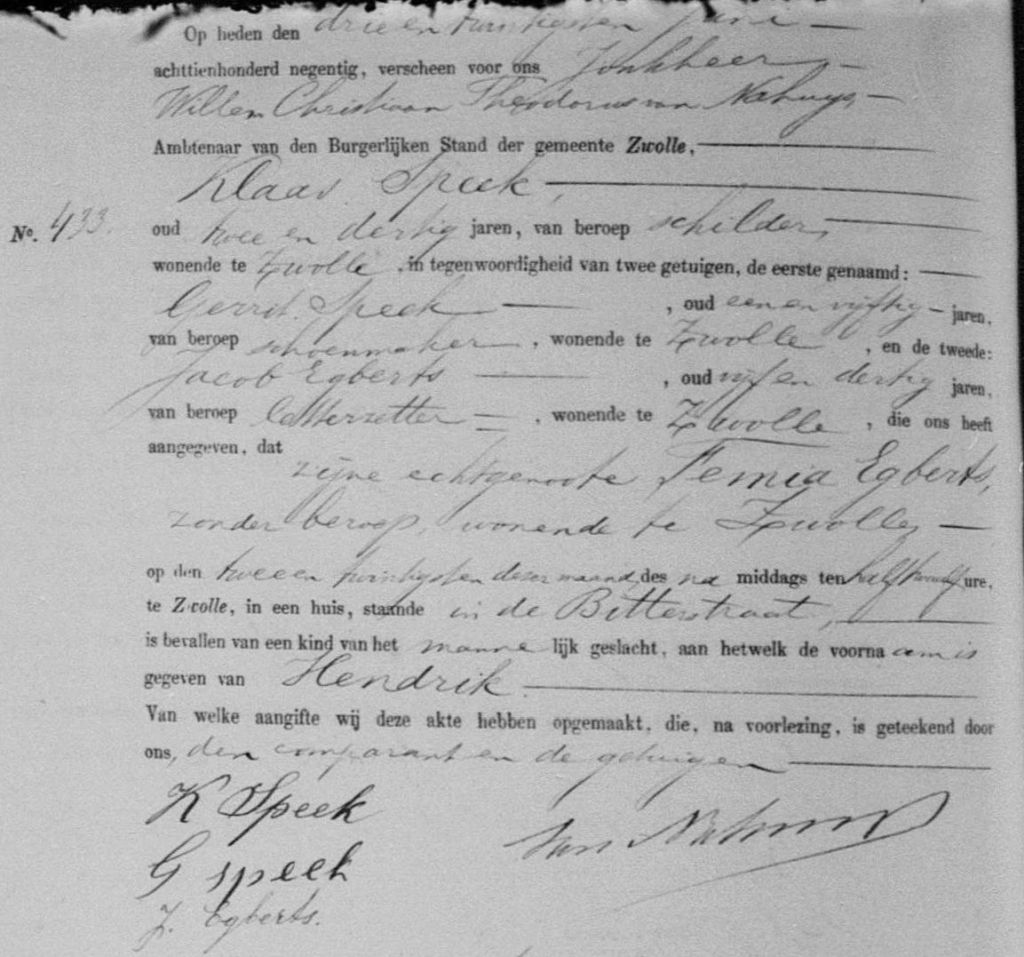 Op heden den drie en twintigsten Juni
achttienhonderd negentig, verscheen voor ons Jonkheer
Willem Christiaan Theodorus van Nahuys
Ambtenaar van den Burgerlijken Stand der gemeente Zwolle,
Klaas Speek,
No. 433. oud twee en dertig jaren, van beroep schilder,
wonende te Zwolle, in tegenwoordigheid van twee getuigen, de eerste genaamd:
Gerrit Speek, oud een en vijftig jaren,
van beroep schoenmaker, wonende te Zwolle, en de tweede:
Jacob Egberts, oud vijf en dertig jaren,
van beroep letterzetter, wonende te Zwolle, die ons heeft
aangegeven, dat
zijne echtgenoote Femia Egberts,
zonder beroep, wonende te Zwolle,
op den twee en twintigsten dezer maand, des na middags ten half twaalf ure,
te Zwolle, in een huis, staande in de Bitterstraat,
is bevallen van een kind van het manne lijk geslacht, aan hetwelk de voorna am is
gegeven van Hendrik.
Van welke aangifte wij deze akte hebben opgemaakt, die, na voorlezing, is geteekend door
ons, den comparant en de getuigen
K Speek
van Nahuys
G speek
J. Egberts.